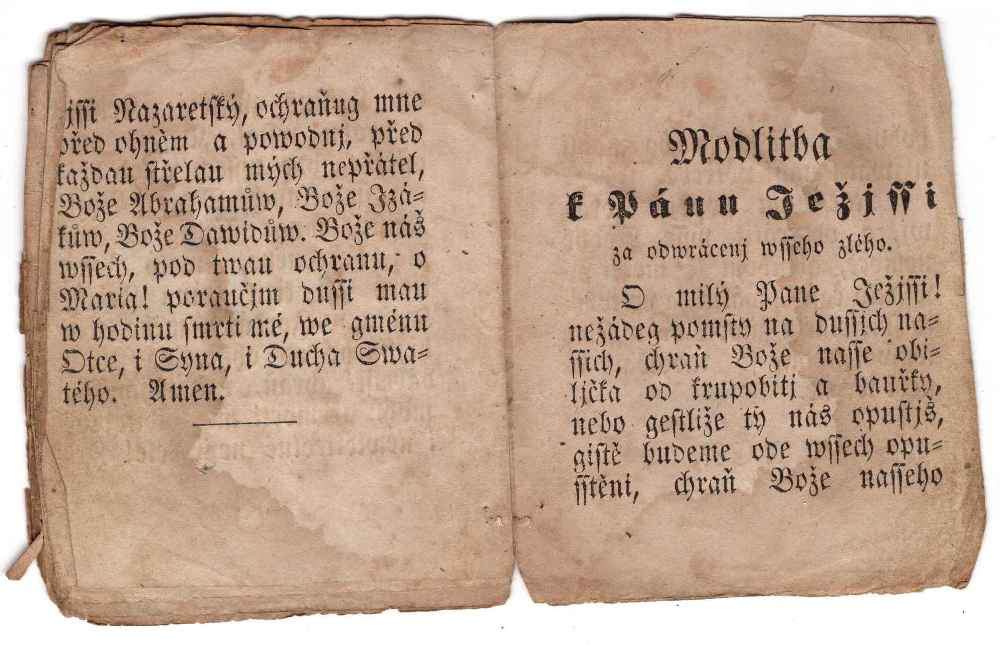 jssi Nazaretský, ochraňug mne
před ohněm a powodnj, před
každau střelau mých nepřátel,
Bože Abrahamůw, Bože Jzá-
kůw, Bože Dawidůw. Bože náš
wssech, pod twau ochranu, o
Maria! poraučjm dussi mau
w hodinu smrti mé, we gménu
Otce, i Syna, i Ducha Swa-
tého. Amen.
Modlitba
k Pánu Ježjssi
za odwrácenj wsseho zlého.
O milý Pane Ježjssi!
nežádeg pomsty na dussjch na-
ssich, chraň Bože nasse obi-
ljčka od krupobitj a bauřky,
nebo gestliže ty nás opustjš,
gistě budeme ode wssech opu-
sstěni, chraň Bože nasseho